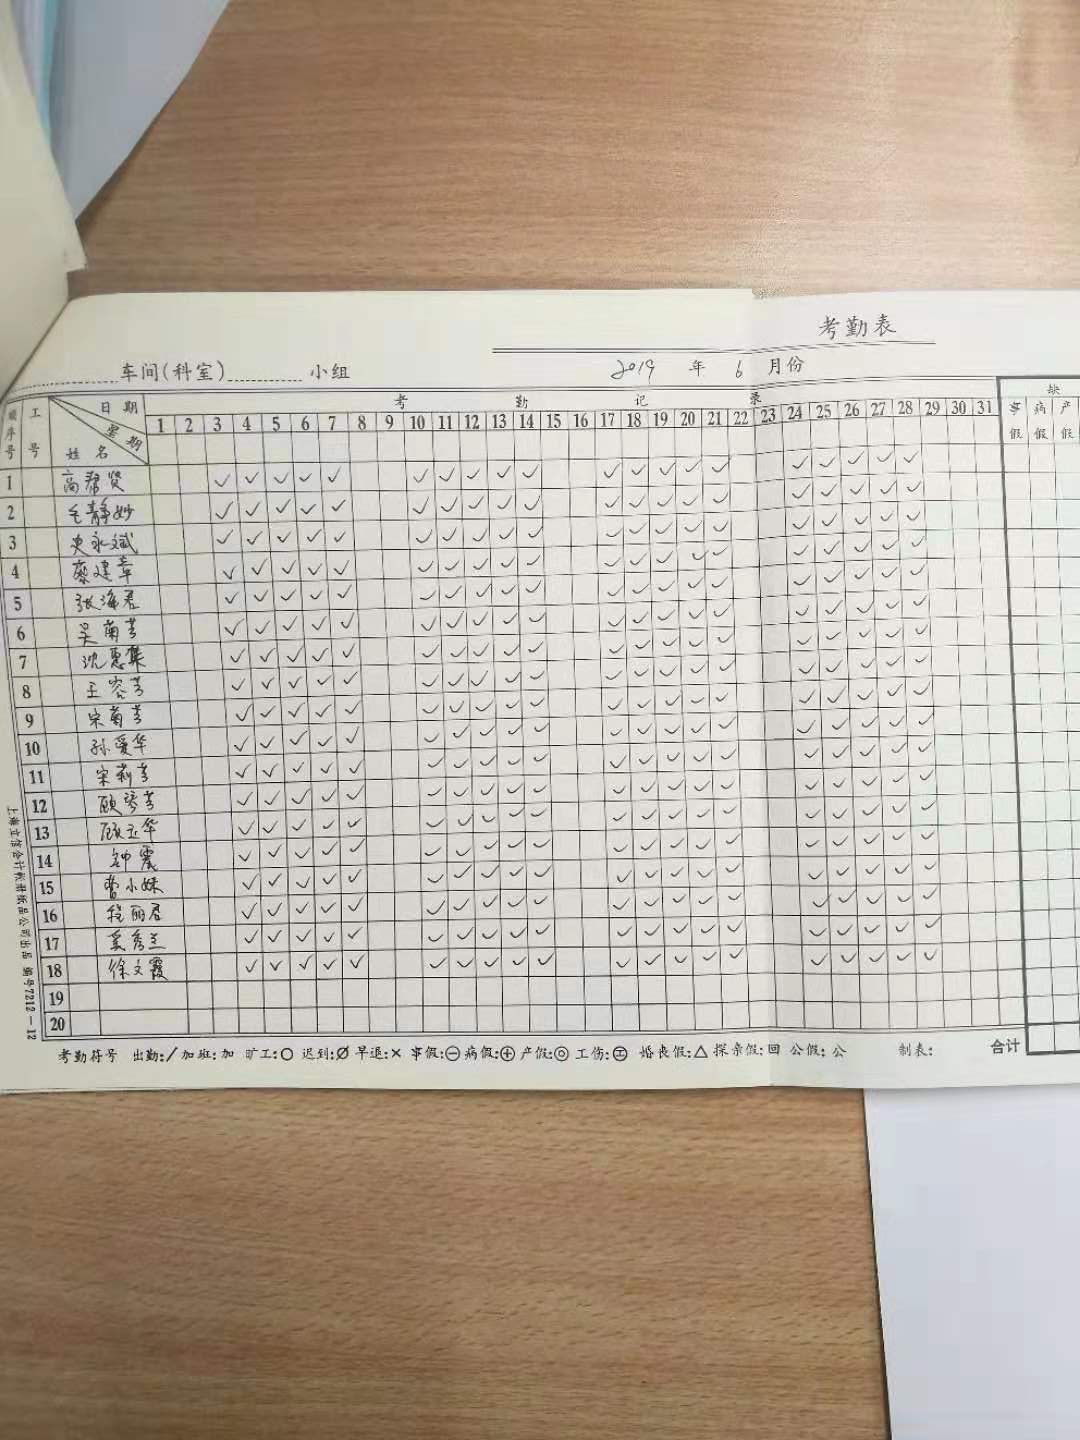 考勤表
车间(科室) 小组 2019 年 6 月份
顺序号 工号 日期 星期 姓名 考勤记录 缺
1 2 3 4 5 6 7 8 9 10 11 12 13 14 15 16 17 18 19 20 21 22 23 24 25 26 27 28 29 30 31 事假 病假 产假
1 高帮贤 ✓ ✓ ✓ ✓ ✓ ✓ ✓ ✓ ✓ ✓ ✓ ✓ ✓ ✓ ✓ ✓ ✓ ✓ ✓ ✓
2 毛静妙 ✓ ✓ ✓ ✓ ✓ ✓ ✓ ✓ ✓ ✓ ✓ ✓ ✓ ✓ ✓ ✓ ✓ ✓ ✓ ✓
3 史永斌 ✓ ✓ ✓ ✓ ✓ ✓ ✓ ✓ ✓ ✓ ✓ ✓ ✓ ✓ ✓ ✓ ✓ ✓ ✓ ✓
4 蔡建章 ✓ ✓ ✓ ✓ ✓ ✓ ✓ ✓ ✓ ✓ ✓ ✓ ✓ ✓ ✓ ✓ ✓ ✓ ✓ ✓
5 张海君 ✓ ✓ ✓ ✓ ✓ ✓ ✓ ✓ ✓ ✓ ✓ ✓ ✓ ✓ ✓ ✓ ✓ ✓ ✓ ✓
6 吴菊芳 ✓ ✓ ✓ ✓ ✓ ✓ ✓ ✓ ✓ ✓ ✓ ✓ ✓ ✓ ✓ ✓ ✓ ✓ ✓ ✓
7 沈惠集 ✓ ✓ ✓ ✓ ✓ ✓ ✓ ✓ ✓ ✓ ✓ ✓ ✓ ✓ ✓ ✓ ✓ ✓ ✓ ✓
8 王容芳 ✓ ✓ ✓ ✓ ✓ ✓ ✓ ✓ ✓ ✓ ✓ ✓ ✓ ✓ ✓ ✓ ✓ ✓ ✓ ✓
9 宋菊芳 ✓ ✓ ✓ ✓ ✓ ✓ ✓ ✓ ✓ ✓ ✓ ✓ ✓ ✓ ✓ ✓ ✓ ✓ ✓ ✓
10 孙爱华 ✓ ✓ ✓ ✓ ✓ ✓ ✓ ✓ ✓ ✓ ✓ ✓ ✓ ✓ ✓ ✓ ✓ ✓ ✓ ✓
11 宋莉芳 ✓ ✓ ✓ ✓ ✓ ✓ ✓ ✓ ✓ ✓ ✓ ✓ ✓ ✓ ✓ ✓ ✓ ✓ ✓ ✓
12 顾琴芳 ✓ ✓ ✓ ✓ ✓ ✓ ✓ ✓ ✓ ✓ ✓ ✓ ✓ ✓ ✓ ✓ ✓ ✓ ✓ ✓
13 顾玉华 ✓ ✓ ✓ ✓ ✓ ✓ ✓ ✓ ✓ ✓ ✓ ✓ ✓ ✓ ✓ ✓ ✓ ✓ ✓ ✓
14 钟震 ✓ ✓ ✓ ✓ ✓ ✓ ✓ ✓ ✓ ✓ ✓ ✓ ✓ ✓ ✓ ✓ ✓ ✓ ✓ ✓
15 曹小妹 ✓ ✓ ✓ ✓ ✓ ✓ ✓ ✓ ✓ ✓ ✓ ✓ ✓ ✓ ✓ ✓ ✓ ✓ ✓ ✓
16 程丽君 ✓ ✓ ✓ ✓ ✓ ✓ ✓ ✓ ✓ ✓ ✓ ✓ ✓ ✓ ✓ ✓ ✓ ✓ ✓ ✓
17 奚秀兰 ✓ ✓ ✓ ✓ ✓ ✓ ✓ ✓ ✓ ✓ ✓ ✓ ✓ ✓ ✓ ✓ ✓ ✓ ✓ ✓
18 徐文霞 ✓ ✓ ✓ ✓ ✓ ✓ ✓ ✓ ✓ ✓ ✓ ✓ ✓ ✓ ✓ ✓ ✓ ✓ ✓ ✓
19
20
考勤符号 出勤:/ 加班:加 旷工:○ 迟到:Ø 早退:× 事假:⊖ 病假:⊕ 产假:◎ 工伤:㊣ 婚丧假:△ 探亲假:回 公假:公 制表: 合计
上海立信会计账册纸品公司出品 编号7212-12